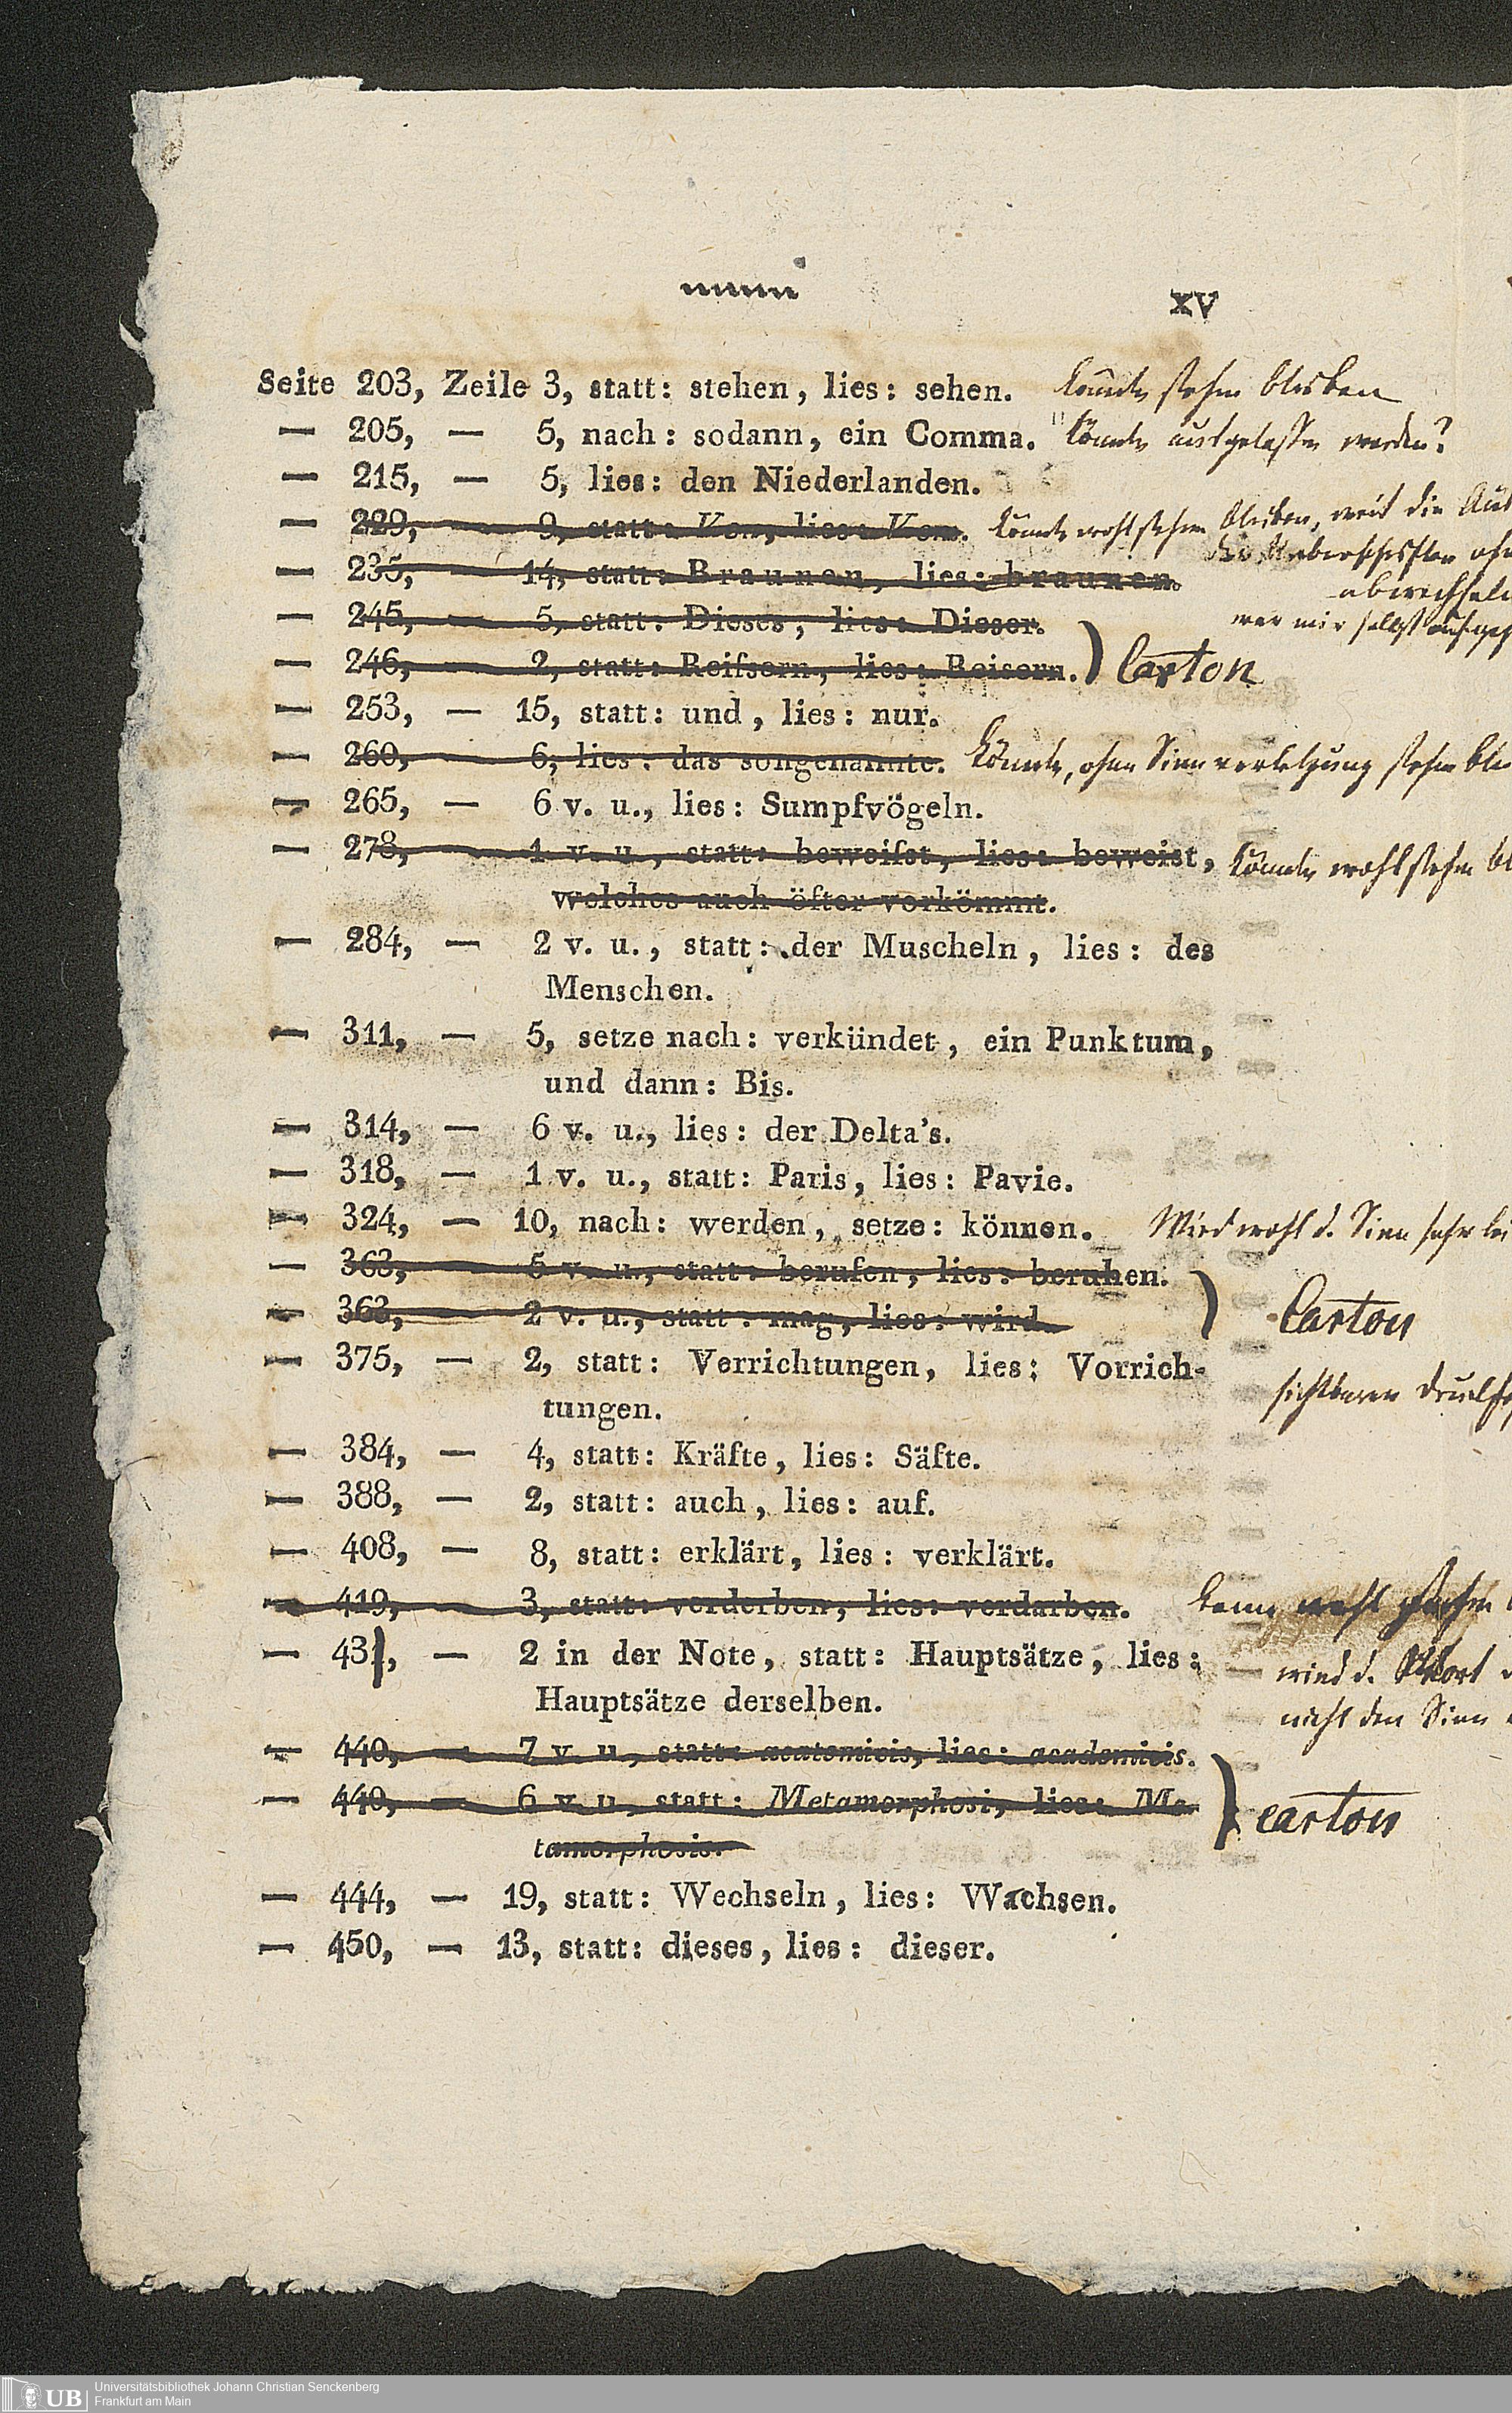 XV
Seite 203, Zeile 3, statt: stehen, lies: sehen. könnte stehen bleiben
— 205, — 5, nach: sodann, ein Comma. könnte ausgelassen werden?
— 215, — 5, lies: den Niederlanden.
— 229, — 9, statt: Von, lies: Vom. könnte wohl stehen bleiben, weil die
— 235, — 14, statt: Braunen, lies: braunen.
— 245, — 5, statt: Dieses, lies: Dieser. mir selbst
— 246, — 2, statt: Reifsern, lies: Reisern. Carton
— 253, — 15, statt: und, lies: nur.
— 260, — 6, lies: das songenannte. könnte, ohne Sinnverletzung stehen
— 265, — 6 v. u., lies: Sumpfvögeln.
— 278, — 1 v. u., statt: beweifst, lies: beweist, könnte wohl stehen
welches auch öfter vorkömmt.
— 284, — 2 v. u., statt: der Muscheln, lies: des
Menschen.
— 311, — 5, setze nach: verkündet, ein Punktum,
und dann: Bis.
— 314, — 6 v. u., lies: der Delta's.
— 318, — 1 v. u., statt: Paris, lies: Pavie.
— 324, — 10, nach: werden, setze: können. Wird wohl d. Sinn sehr
— 363, — 5 v. u., statt: berufen, lies: beruhen.
— 363, — 2 v. u., statt: mag, lies: wird. Carton
— 375, — 2, statt: Verrichtungen, lies: Vorrich-
tungen.
— 384, — 4, statt: Kräfte, lies: Säfte.
— 388, — 2, statt: auch, lies: auf.
— 408, — 8, statt: erklärt, lies: verklärt.
— 419, — 3, statt: verderben, lies: verdarben. kann wohl stehen
— 431, — 2 in der Note, statt: Hauptsätze, lies: wird d. Wort
Hauptsätze derselben. nicht den Sinn
— 440, — 7 v. u., statt: acatemicis, lies: academicis.
— 440, — 6 v. u., statt: Metamorphosi, lies: Me- carton
tamorphosis.
— 444, — 19, statt: Wechseln, lies: Wachsen.
— 450, — 13, statt: dieses, lies: dieser.
UB Universitätsbibliothek Johann Christian Senckenberg
Frankfurt am Main